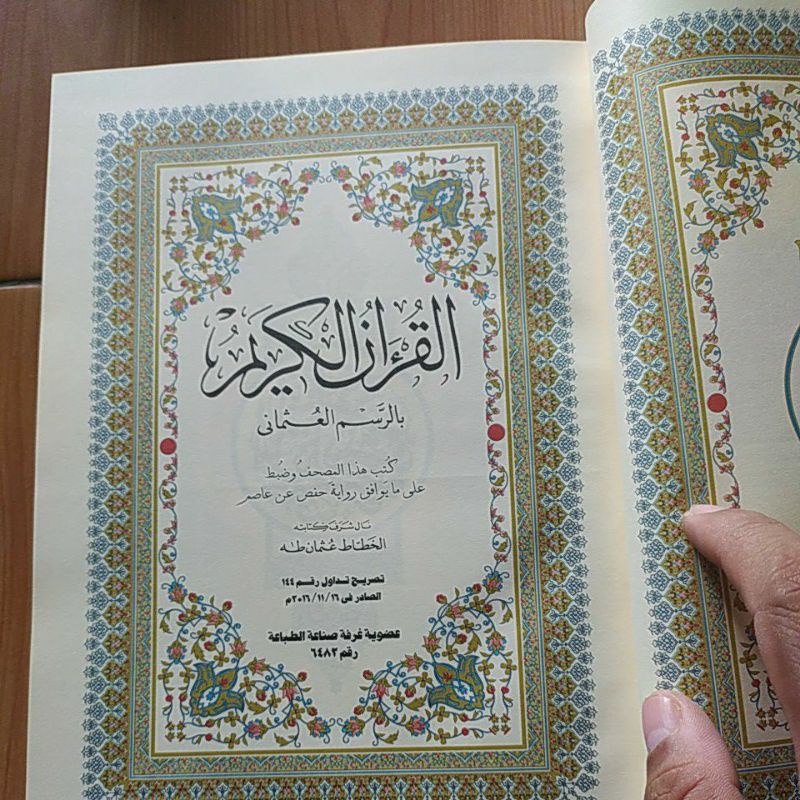 القرءان الكريم
بالرسم العثماني
كتب هذا المصحف وضبط
على ما يوافق رواية حفص عن عاصم
نال شرف كتابته
الخطاط عثمان طه
تصريح تداول رقم ١٤٤
الصادر فى ٢٠١٦/١١/١٦م
عضوية غرفة صناعة الطباعة
رقم ٦٤٨٣